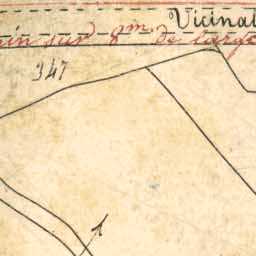 Vicinal
in sur 8m. de large
347